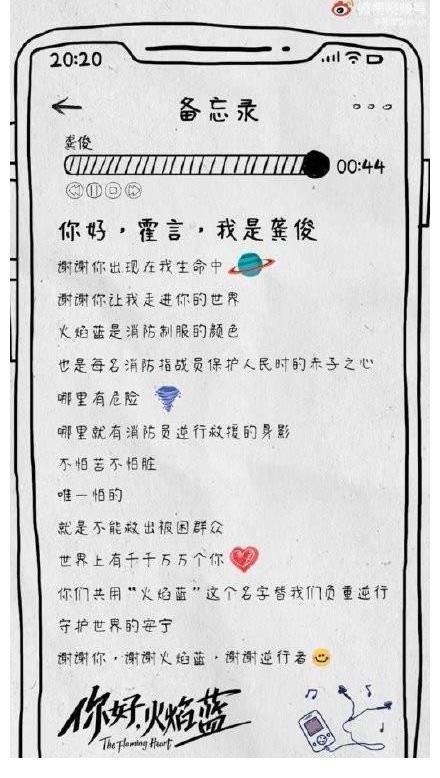 20:20
备忘录
龚俊
00:44
你好，霍言，我是龚俊
谢谢你出现在我生命中
谢谢你让我走进你的世界
火焰蓝是消防制服的颜色
也是每名消防指战员保护人民时的赤子之心
哪里有危险
哪里就有消防员逆行救援的身影
不怕苦不怕脏
唯一怕的
就是不能救出被困群众
世界上有千千万万个你
你们共用“火焰蓝”这个名字替我们负重逆行
守护世界的安宁
谢谢你，谢谢火焰蓝，谢谢逆行者
你好，火焰蓝
The Flaming Heart